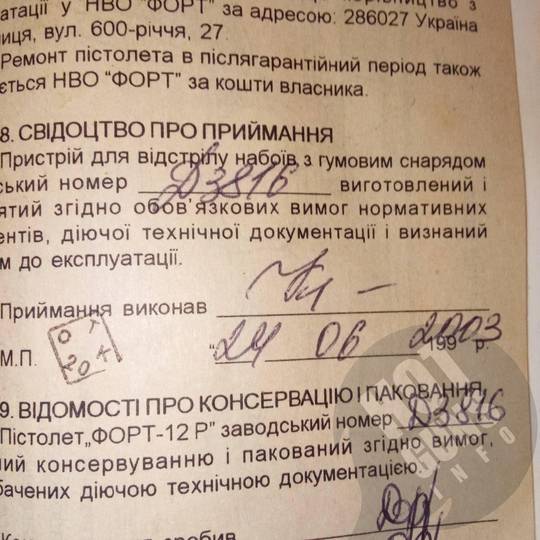 атації у НВО “ФОРТ” за адресою: 286027 Україна
ниця, вул. 600-річчя, 27.
Ремонт пістолета в післягарантійний період також
ється НВО “ФОРТ” за кошти власника.
8. СВІДОЦТВО ПРО ПРИЙМАННЯ
Пристрій для відстрілу набоїв з гумовим снарядом
ський номер ДЗ816 виготовлений і
ятий згідно обов’язкових вимог нормативних
ентів, діючої технічної документації і визнаний
м до експлуатації.
Приймання виконав
О Т К 20
М.П. “24 06 2003 199 р.
9. ВІДОМОСТІ ПРО КОНСЕРВАЦІЮ І ПАКОВАННЯ
Пістолет „ФОРТ-12 Р” заводський номер ДЗ816
ний консервуванню і пакований згідно вимог,
бачених діючою технічною документацією.